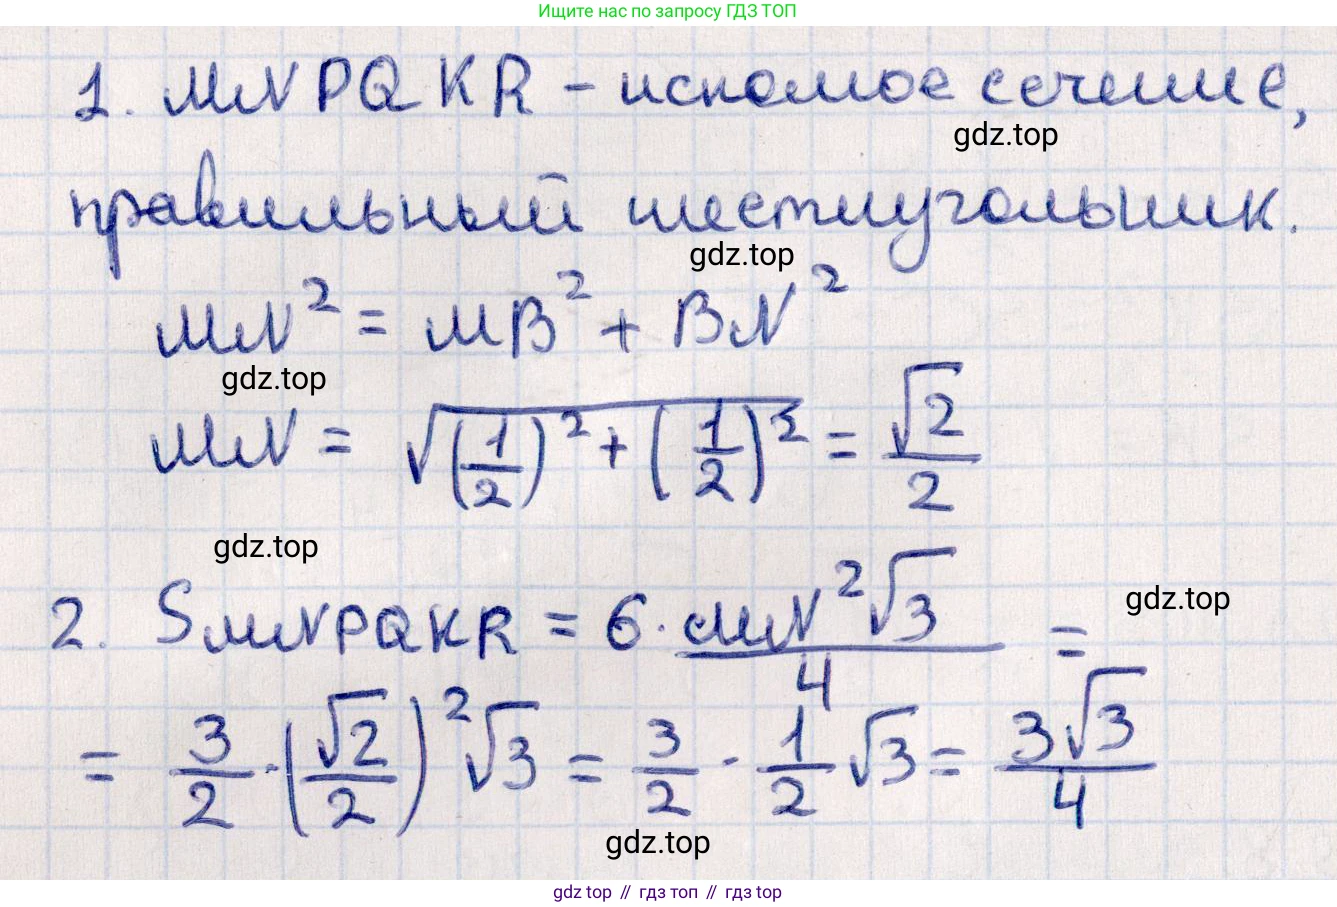 Ищите нас по запросу ГДЗ ТОП
1. MNPQKR – искомое сечение,
gdz.top
правильный шестиугольник.
gdz.top
MN² = MB² + BN²
gdz.top
MN = √((1/2)² + (1/2)²) = √2/2
gdz.top
2. S MNPQKR = 6 · MN²√3/4 =
gdz.top
= 3/2 · (√2/2)² √3 = 3/2 · 1/2 √3 = 3√3/4
gdz.top
gdz top // гдз топ // гдз top